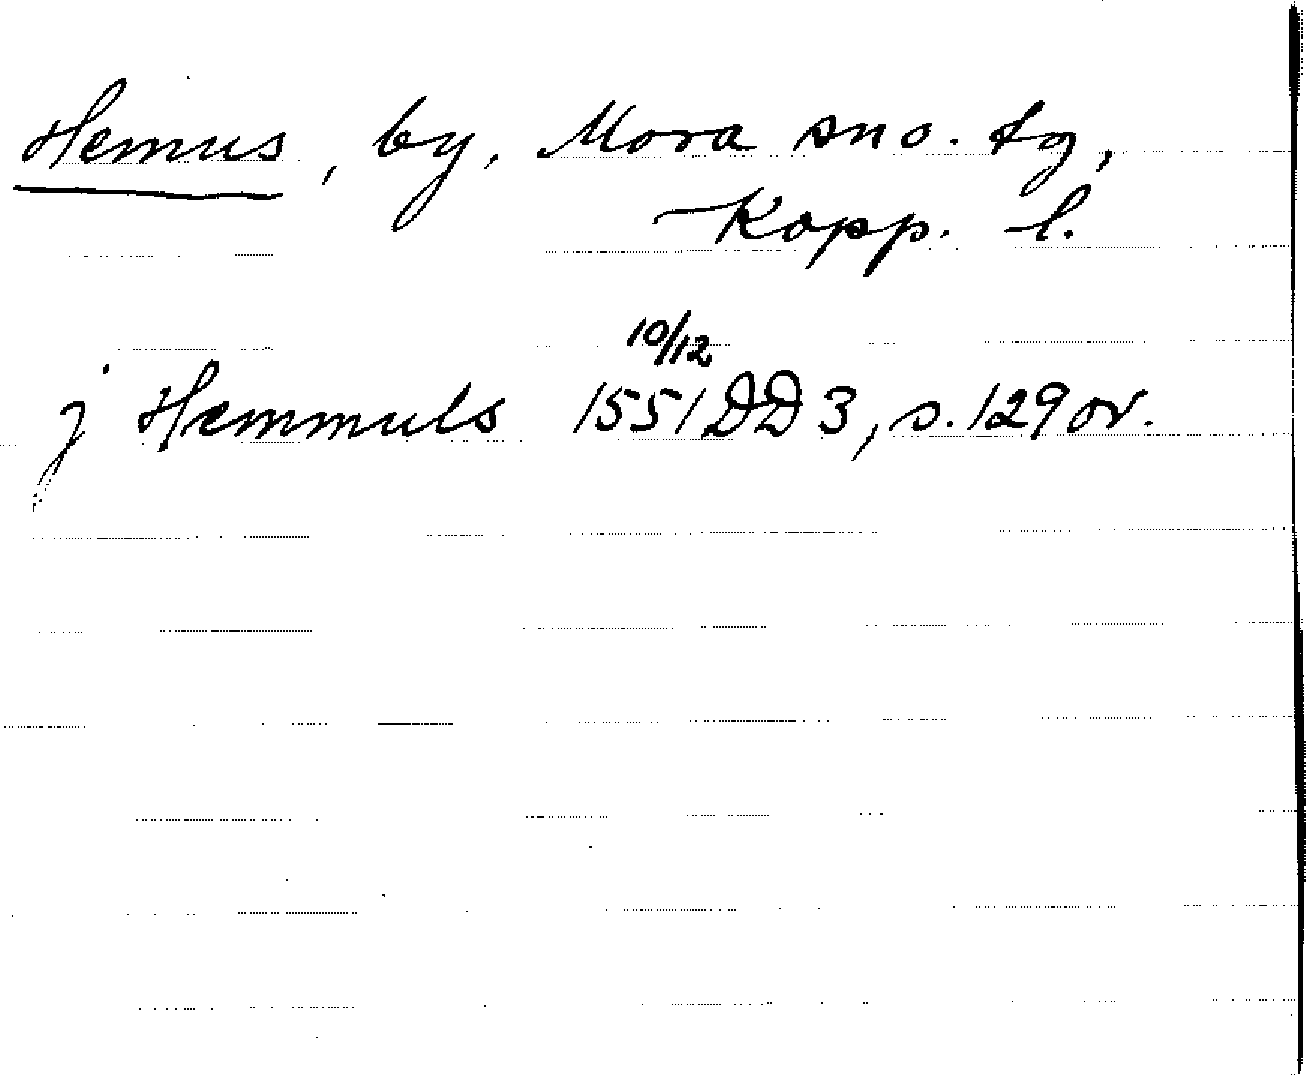 Hemus, by, Mora sno. tg,
Kopp. l.
10/12
j Hemmuls 1551 DD 3, s. 129 or.